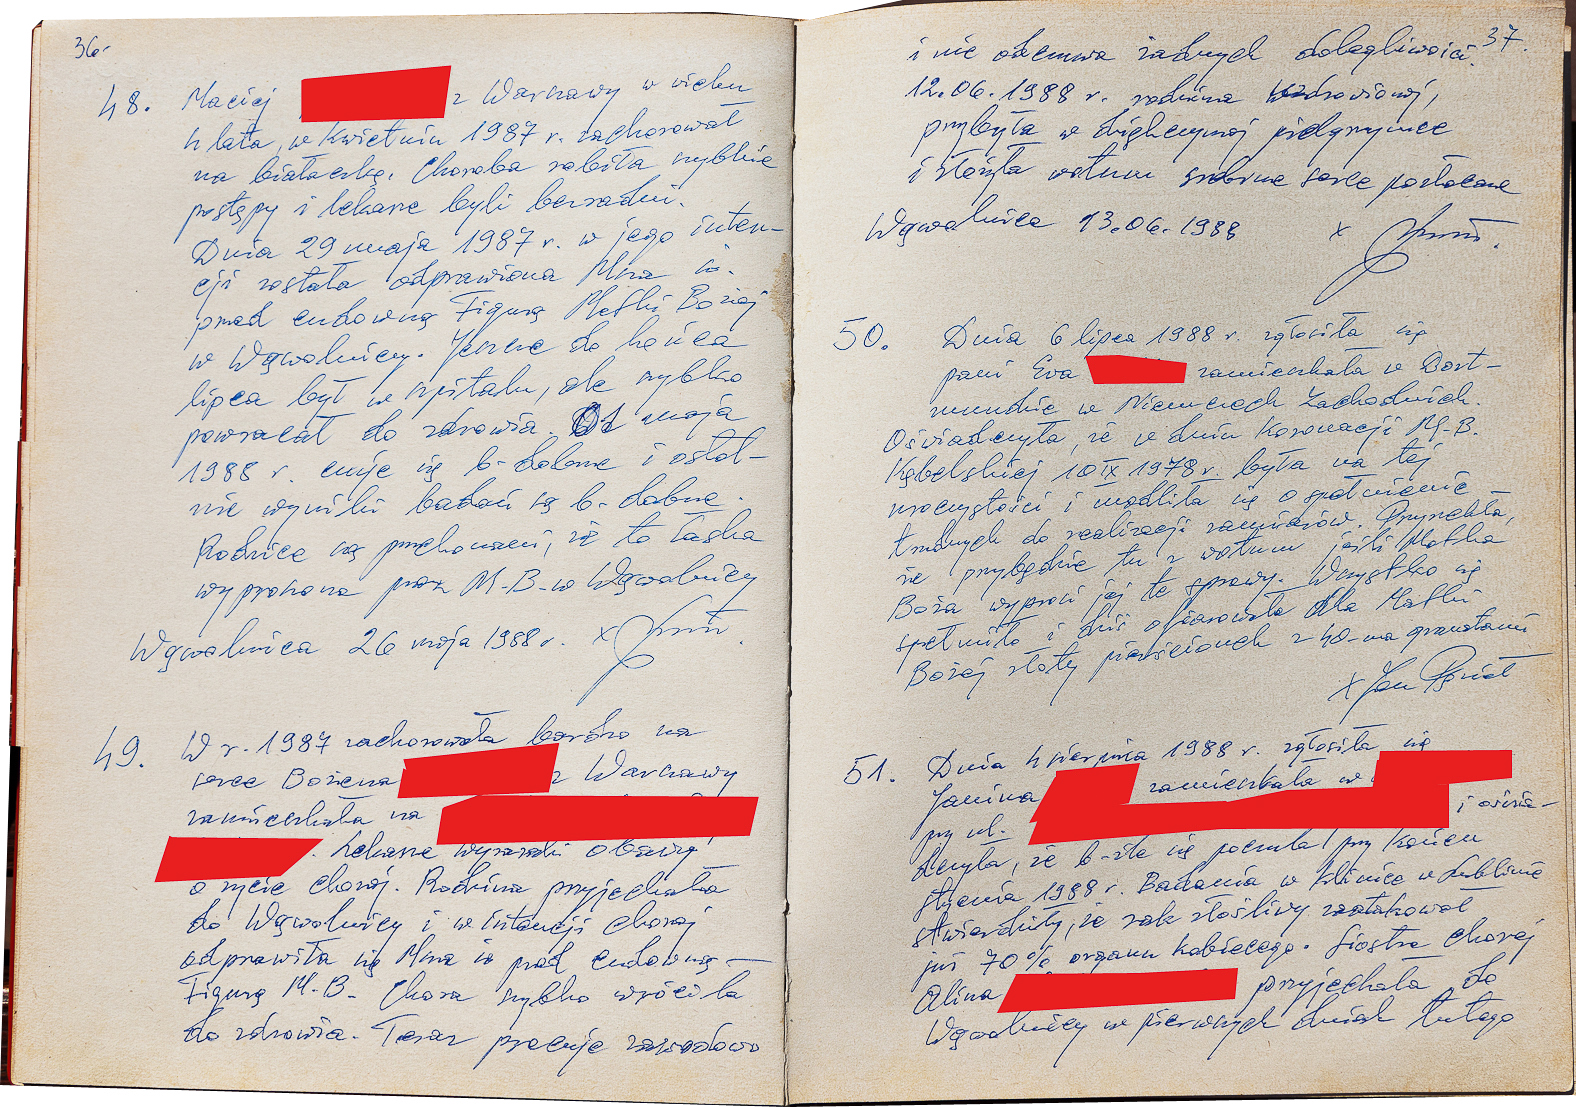 36.
48. Maciej z Warszawy w wieku
4 lata, w kwietniu 1987 r. zachorował
na białaczkę. Choroba robiła szybkie
postępy i lekarze byli bezradni.
Dnia 29 maja 1987 r. w jego inten-
cji została odprawiona Msza św.
przed cudowną Figurą Matki Bożej
w Wąwolnicy. Jeszcze do końca
lipca był w szpitalu, ale szybko
powracał do zdrowia. Od maja
1988 r. czuje się b. dobrze i ostat-
nie wyniki badań są b. dobre.
Rodzice są przekonani, że to łaska
wyproszona przez M.B. w Wąwolnicy
Wąwolnica 26 maja 1988 r. x
49. W r. 1987 zachorowała bardzo na
serce Bożena z Warszawy
zamieszkała na
. Lekarze wyrazili obawę
o życie chorej. Rodzina przyjechała
do Wąwolnicy i w intencji chorej
odprawiła się Msza św przed cudowną
Figurą M.B. Chora szybko wróciła
do zdrowia. Teraz pracuje zawodowo
37.
i nie odczuwa żadnych dolegliwości.
12.06.1988 r. rodzina uzdrowionej,
przybyła w dziękczynnej pielgrzymce
i złożyła wotum srebrne serce pozłacane
Wąwolnica 13.06.1988 x
50. Dnia 6 lipca 1988 r. zgłosiła się
pani Ewa zamieszkała w Dort-
mundzie w Niemczech Zachodnich.
Oświadczyła, że w dniu Koronacji M.B.
Kębelskiej 10 IX 1978 r. była na tej
uroczystości i modliła się o spełnienie
trudnych do realizacji zamiarów. Przyrzekła,
że przybędzie tu z wotum jeśli Matka
Boża wyprosi jej te sprawy. Wszystko się
spełniło i dziś ofiarowała dla Matki
Bożej złoty pierścionek z 40-ma granatami
x Jan
51. Dnia 4 sierpnia 1988 r. zgłosiła się
Janina zamieszkała w
przy ul. i oświa-
dczyła, że b. źle się poczuła przy końcu
stycznia 1988 r. Badania w klinice w Lublinie
stwierdziły, że rak złośliwy zaatakował
już 70% organu kobiecego. Siostra chorej
Alina przyjechała do
Wąwolnicy w pierwszych dniach lutego